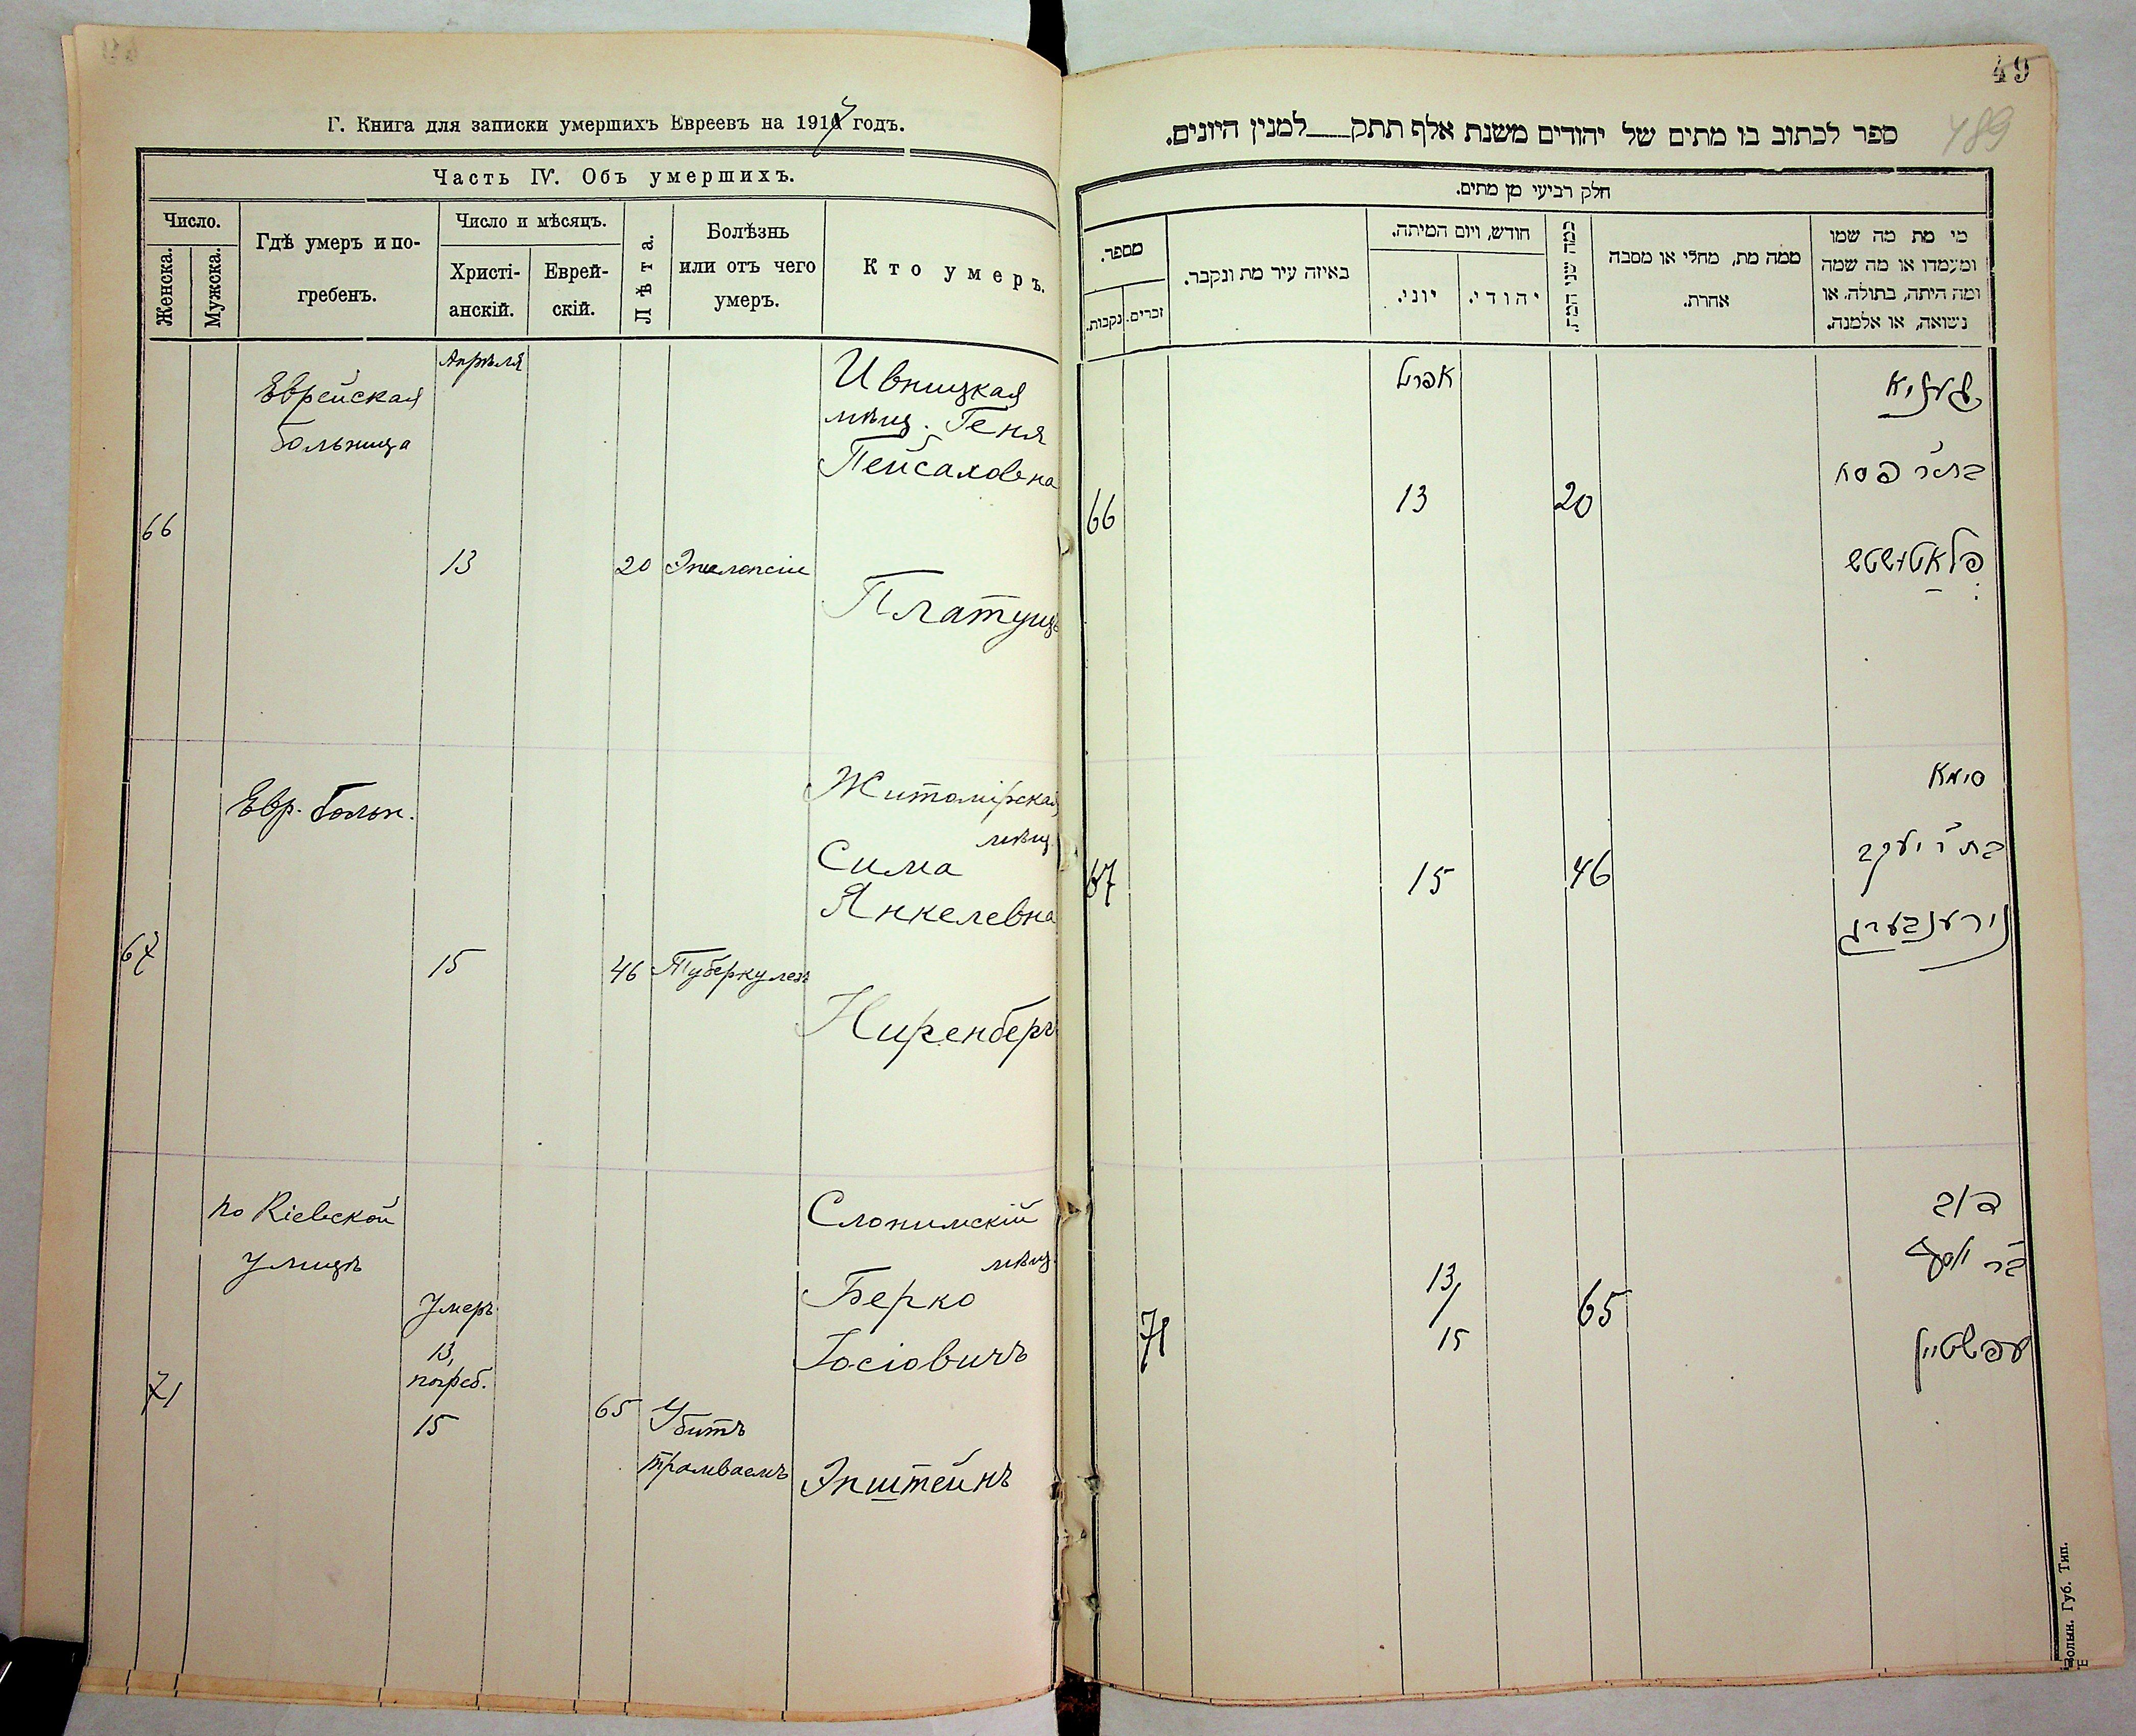 Г. Книга для записки умершихъ Евреевъ на 1917 годъ.
Часть IV. Объ умершихъ.
Число.
Женска.
Мужска.
Гдѣ умеръ и по-
гребенъ.
Число и мѣсяцъ.
Христі-
анскій.
Еврей-
скій.
Лѣта.
Болѣзнь
или отъ чего
умеръ.
Кто умеръ.
Апрѣля
Еврейская
больница
66
13
20
Ивницкая
мѣщ. Геня
Пейсаховна
Платущъ
Евр. больн.
67
15
46
Туберкулезъ
Житомірская
мѣщ.
Сима
Янкелевна
Ниренбергъ
по Кіевской
улицѣ
71
Умеръ
13,
погреб.
15
65
Убитъ
трамваемъ
Слонимскій
мѣщ.
Берко
Іосіовичъ
Эпштейнъ
49
489
ספר לכתוב בו מתים של יהודים משנת אלף תתק למנין היונים.
חלק רביעי מן מתים.
מי מת מה שמו
ומעמדו או מה שמה
ומה היתה, בתולה, או
נשואה, או אלמנה.
ממה מת, מחלי או מסבה
אחרת.
כמה שני המת
חודש, ויום המיתה.
יהודי.
יוני.
באיזה עיר מת ונקבר.
מספר.
זכרים.
נקבות.
אפריל
בת ר׳ פסח
20
13
66
סימא
בת ר׳ יעקב
נירענבערג
46
15
67
בער
בר יוסף
עפשטיין
65
13/
15
71
Волын. Губ. Тип.